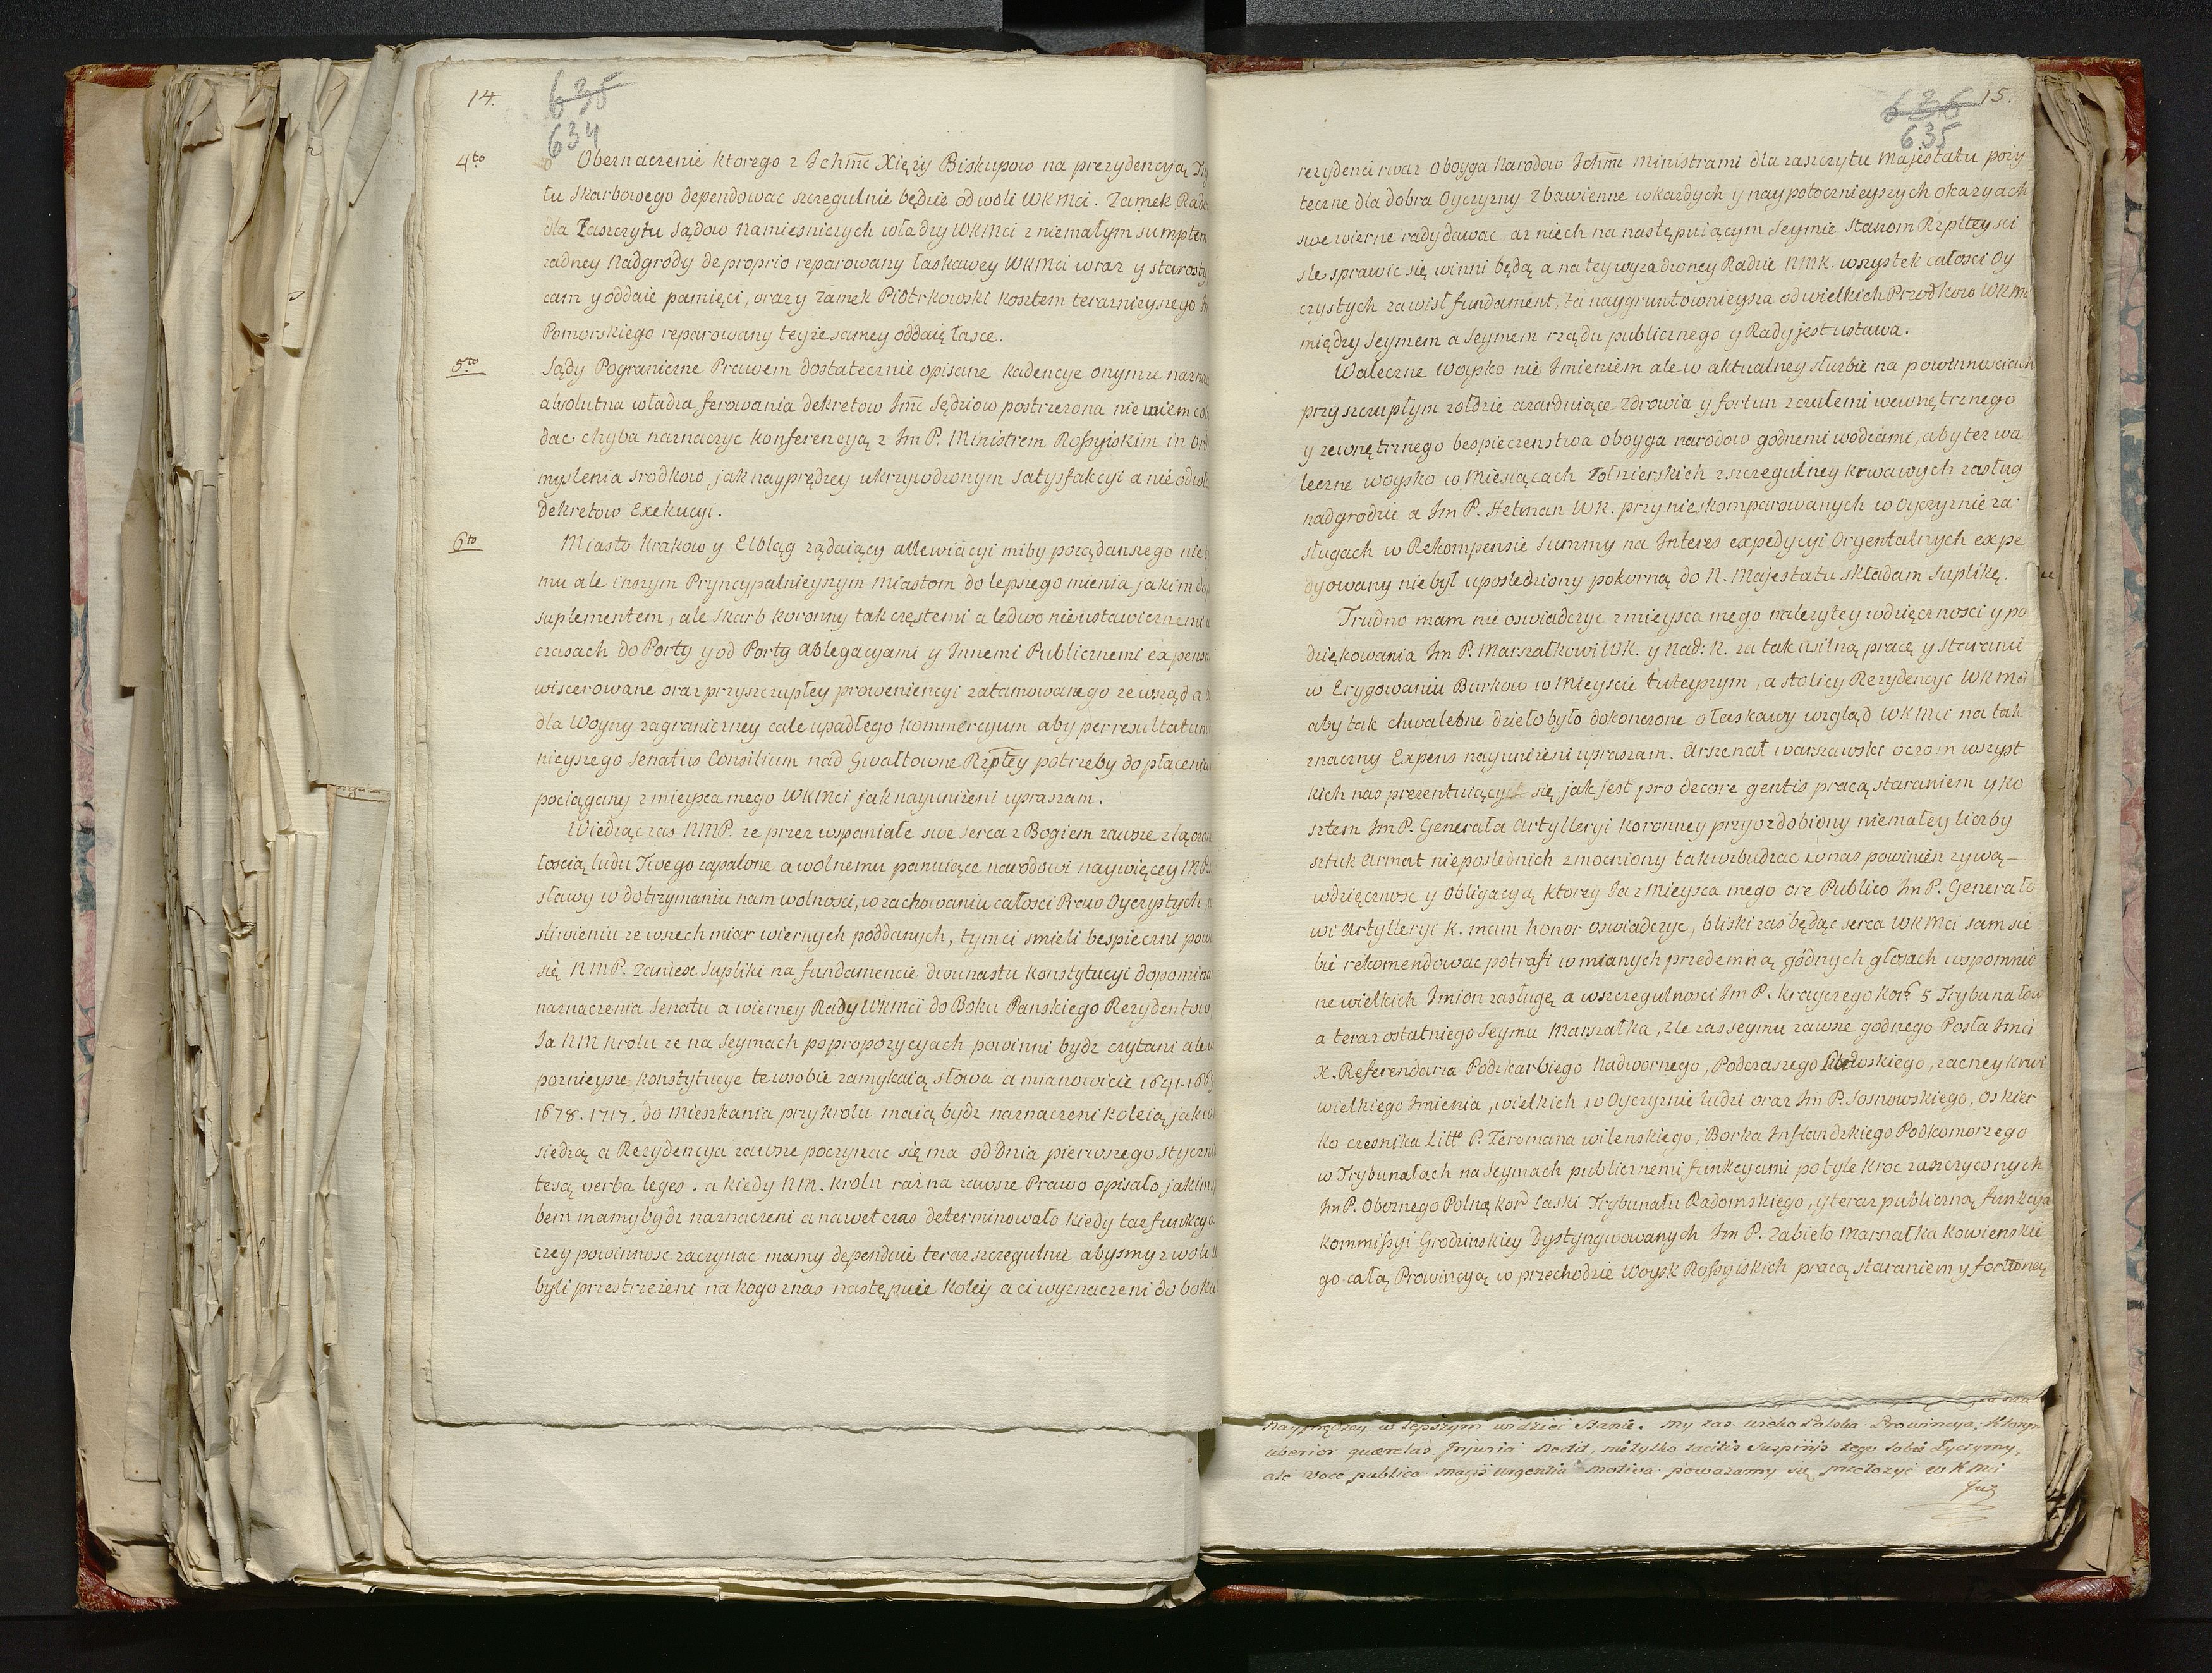 14.
635
634
4to Obeznaczenie ktorego z Ichmc Xięży Biskupow na prezydencyą
tu Skarbowego dependowac szczegulnie będzie od woli WKMci. Zamek
dla Zaszczytu Sądow Namiesniczych władzy WKMci z niemałym
zadney Nadgrody de proprio reparowany łaskawey WKMci wraz y
cam y oddaie pamięci, oraz y Zamek Piotrkowski kosztem teraznieyszego
Pomorskiego reparowany teyze samey oddaię łasce.
5to Sądy Pograniczne Prawem dostatecznie opisane kadencye onymze
absolutna władza ferowania dekretow Imc Sędziow postrzezona nie wiem
dac chyba naznaczyc konferencyą z Im P. Ministrem Rossyiskim in
myslenia srodkow jak nayprędzey ukrzywdzonym satysfakcyi a nie
dekretow Exekucyi.
6to Miasto Krakow y Elbląg ządaiący allewiacyi miby pożądanszego nie
mu ale inszym Pryncypalnieyszym Miastom do lepszego mienia jakim
suplementem, ale Skarb Koronny tak częstemi a ledwo nieustawicznemi
czasach do Porty y od Porty Ablegacyami y Innemi Publicznemi
wiscerowane oraz przy szczupłey proweniencyi zatamowanego zewsząd
dla Woyny zagraniczney cale upadłego Kommercyum aby per resultatum
nieyszego Senatus Consilium nad Gwałtowne Rzpltey potrzeby do płacenia
pociągany z mieysca mego WKMci jak nayunizeni upraszam.
Wiedząc zas NMP. ze przez wspaniałe swe serca z Bogiem zawsze
łoscią ludu Twego zapalone a wolnemu panuiące narodowi naywięcey
sławy w dotrzymaniu nam wolnosci, w zachowaniu całosci Praw Oyczystych
sliwieniu ze wszech miar wiernych poddanych, tym ci smieli bespieczni
się NMP. zaniesc Supliki na fundamencie dwunastu Konstytucyi
naznaczenia Senatu a wierney Rady WKMci do Boku Panskiego
Ia NM Krolu ze na Seymach po propozycyach powinni bydz czytani
poznieysze Konstytucye te wsobie zamykaią słowa a mianowicie 1641.
1678. 1717. do Mieszkania przy krolu maią bydz naznaczeni koleią
siedzą a Rezydencya zawsze poczynac się ma od Dnia pierwszego
te są verba leges. a kiedy NM. Krolu raz na zawsze Prawo opisało
bem mamy bydz naznaczeni a nawet czas determinowało kiedy taz
czey powinnosc zaczynac mamy dependuie teraz szczegulnie abysmy z woli
byli przestrzezeni na kogo z nas następuie koley a ci wyznaczeni do boku
636 15.
635
rezydenci wraz oboyga Narodow Ichmc Ministrami dla zaszczytu Majestatu pozy
teczne dla dobra Oyczyzny zbawienne w kazdych y naypotocznieyszych okazyach
swe wierne rady dawac, az niech na następuiącym Seymie Stanom Rzpltey sci
sle sprawic się winni będą a na tey wyradzoney Radzie NMK. wszystek całosci Oy
czystych zawisł fundament, ta naygruntownieysza od wielkich Przodkow WKMci
między Seymem a Seymem rządu publicznego y Rady jest ustawa.
Waleczne Woysko nie Imieniem ale w aktualney słuzbie na powinnosciach
przy szczupłym zołdzie azarduiące zdrowia y fortun z czułemi wewnętrznego
y zewnętrznego bespieczenstwa oboyga narodow godnemi wodzami, aby tez wa
leczne woysko w Miesiącach Zołnierskich z szczegulney krwawych zasług
nadgrodzie a Im P. Hetman WK. przy nieskomparowanych w Oyczyznie za
sługach w Rekompensie Summy na Interes expedycyi Oryentalnych expe
dyowany nie był uposledziony pokorną do N. Majestatu składam suplikę.
Trudno mam nie oswiadczyc z mieysca mego nalezytey wdzięcznosci y po
dziękowania Im P. Marszałkowi WK. y Nad: K. za tak usilną pracę y staranie
w Erygowaniu Burkow w Mieyscie tuteyszym, a stolicy Rezydencyi WKMci
aby tak chwalebne dzieło było dokonczone o łaskawy wzgląd WKMci na tak
znaczny Expens nayunizeni upraszam. Arszenał warszawski oczom wszyst
kich nas prezentuiący się jak jest pro decore gentis pracą staraniem y ko
sztem Im P. Generała Artylleryi Koronney przyozdobiony niemałey liczby
sztuk Armat nieposlednich zmocniony tak wzbudzac w nas powinien zywą
wdzięcznosc y Obligacyą ktorey Ia z Mieysca mego ore Publico Im P. Generało
wi Artylleryi K. mam honor oswiadczyc, bliski zas będąc serca WKMci sam sie
bie rekomendowac potrafi w mianych przedemną godnych głosach wspomnio
ne wielkich Imion zasługę a w szczegulnosci Im P. Krayczego Kor: 5 Trybunałow
a teraz ostatniego Seymu Marszałka, zle zas seymu zawsze godnego Posła Imci
X. Referendarza Podskarbiego Nadwornego, Podczaszego zacney krwi
wielkiego Imienia, wielkich w Oyczyznie ludzi oraz Im P. Sosnowskiego. Oskier
ko czesnika Litto P. Zeromana wilenskiego, Borka Inflandzkiego Podkomorzego
w Trybunałach na Seymach publicznemi funkcyami potyle kroc zaszczyconych
Im P. Oboznego Polną Kor laski Trybunału Radomskiego, y teraz publiczną funkcyą
kommissyi Grodzinskiey Dystyngwowanych Im P. Zabieło Marszałka Kowienskie
go całą Prowincyą w przechodzie Woysk Rossyiskich pracą staraniem y fortuną
nayprędzey w lepszym widziec stanie. My zas wielko Polska Prowincya,
uberior quærelas Injuria dedit, nietylko tacitis suspirijs tego sobie zyczymy,
ale voce publica magis urgentia motiva powazamy się przełozyć WKMci